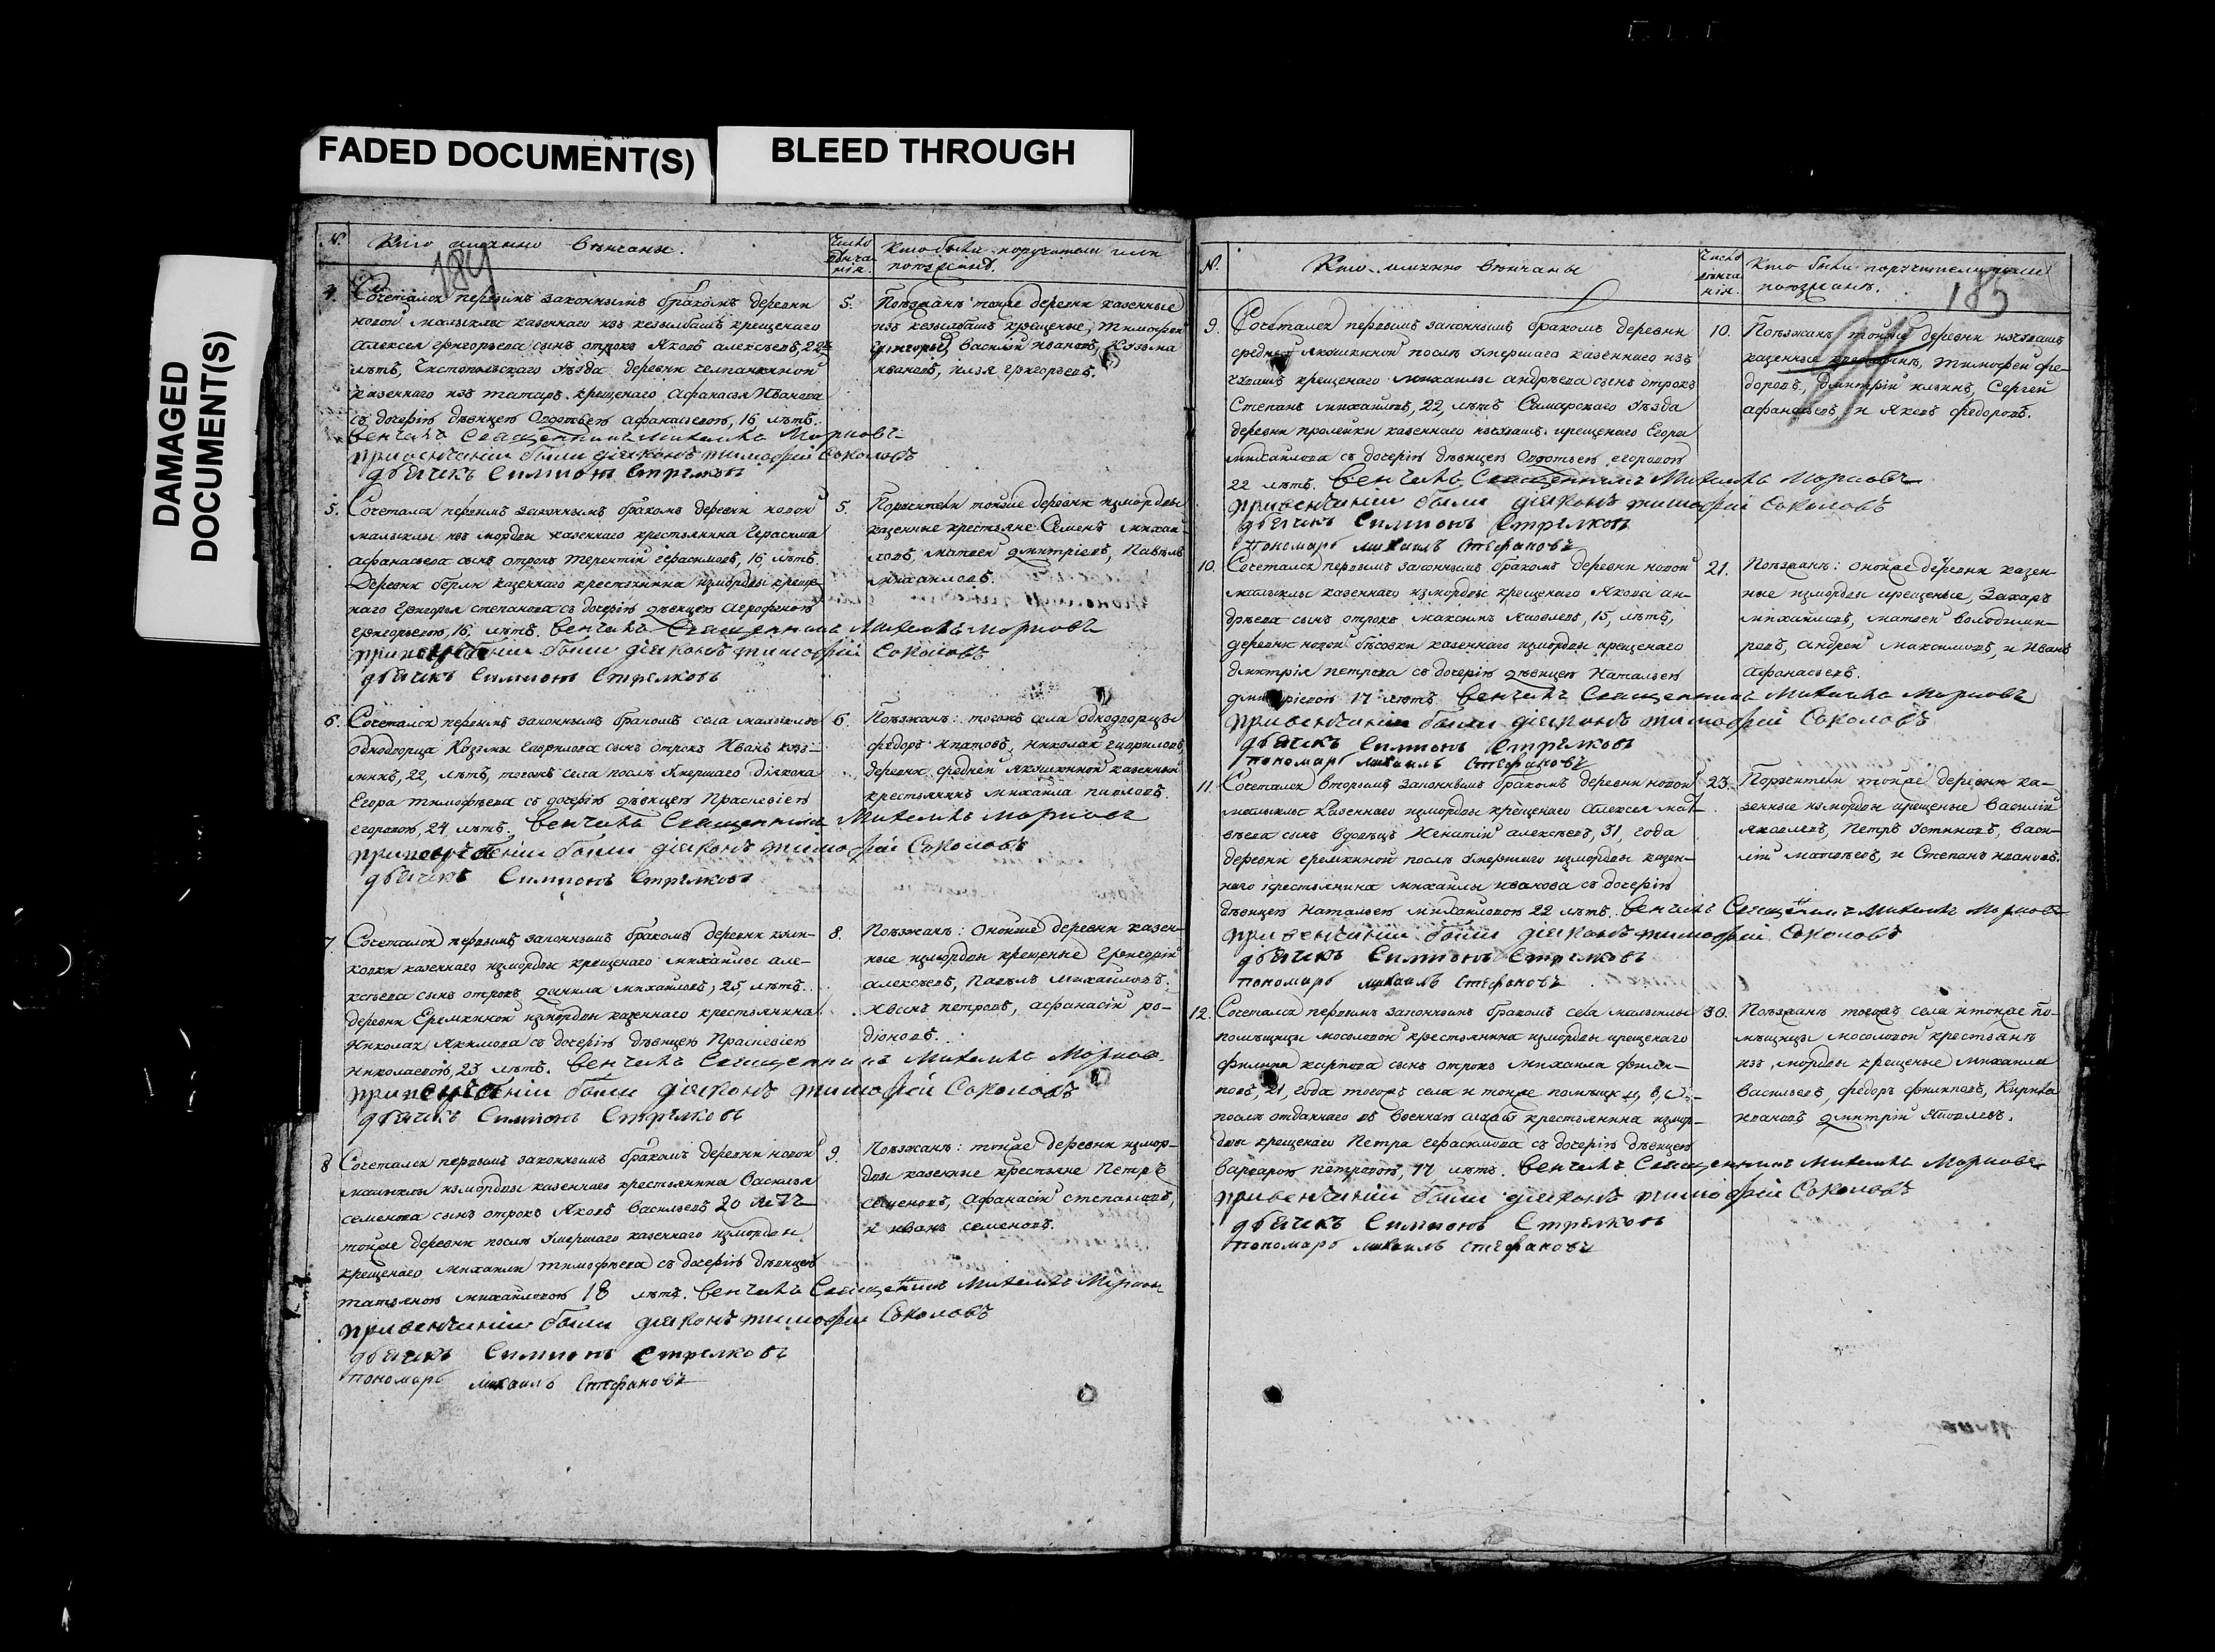 FADED DOCUMENT(S)
BLEED THROUGH
DAMAGED
DOCUMENT(S)
№.
Кто именно венчаны.
Число
венча
нія.
Кто были поручатели или
поѣзжанѣ.
184
4.
Сочетался первымъ законнымъ бракомъ деревни
новой малыклы казеннаго изъ кезылбашъ крещенаго
алексея григорьева сынъ отрокъ Яковъ алексѣевъ, 22
лѣтъ, Чистопольскаго уѣзда деревни
казеннаго изъ татаръ крещенаго Афанасья Иванова
съ дочерію дѣвицею Федотьею афанасьевою, 16, лѣтъ.
венчалъ Священникъ Михаилъ
при венчаніи были діяконъ тимофѣй Соколовъ
дьячекъ Симионъ Стрелковъ
5.
Поѣзжанѣ тояже деревни казенные
изъ кезылбашъ крещеные, тимофеи
григорьевъ, василій ивановъ, Козьма
ивановъ, илья григорьевъ.
5.
Сочетался первымъ законнымъ бракомъ деревни новой
малыклы изъ мордвы казеннаго крестьянина Герасима
афанасьева сынъ отрокъ терентій герасимовъ, 16, лѣтъ.
деревни казеннаго крестьянина измордвы креще
наго григорья степанова съ дочерію дѣвицею Агрофеною
григорьевою, 16, лѣтъ. венчалъ Священникъ Михаилъ
при венчаніи были діяконъ тимофѣй Соколовъ
дьячекъ Симионъ Стрелковъ
5.
Поручители тояже деревни измордвы
казенные крестьяне Семенъ михаи-
ловъ, матвеи дмитріевъ, Павелъ
михаиловъ.
6.
Сочетался первымъ законнымъ бракомъ села малыклы
однодворца Козьмы гаврилова сынъ отрокъ Иванъ козь-
минъ, 22, лѣтъ, тогожъ села послѣ умершаго діякона
Егора тимофѣева съ дочерію дѣвицею Прасковіею
егоровою, 24, лѣтъ. венчалъ Священникъ Михаилъ
при венчаніи были діяконъ тимофѣй Соколовъ
дьячекъ Симионъ Стрелковъ
6.
Поѣзжанѣ: тогожъ села однодворцы
федоръ ипатовъ, николаи гавриловъ,
деревни средней якошкиной казенный
крестьянинъ михаила павловъ.
7.
Сочетался первымъ законнымъ бракомъ деревни
казеннаго измордвы крещенаго михаилы але-
ксѣева сынъ отрокъ данила михаиловъ, 25, лѣтъ.
деревни Еремкиной измордвы казеннаго крестьянина
Николая Якимова съ дочерію дѣвицею Прасковіею
николаевою, 23 лѣтъ. венчалъ Священникъ Михаилъ
при венчаніи были діяконъ тимофѣй Соколовъ
дьячекъ Симионъ Стрелковъ
8.
Поѣзжанѣ: оноияже деревни казен-
ные измордвы крещеные Григорій
алексѣевъ, Павелъ михаиловъ.
иванъ петровъ, афанасій ро-
діоновъ.
8
Сочетался первымъ законнымъ бракомъ деревни новой
малыклы измордвы казеннаго крестьянина Василья
семенова сынъ отрокъ Яковъ Васильевъ 20 летъ
тояже деревни послѣ умершаго казеннаго измордвы
крещенаго михаилы тимофѣева съ дочерію дѣвицею
татьяною михаиловою 18 лѣтъ. венчалъ Священникъ Михаилъ
при венчаніи были діяконъ тимофѣй Соколовъ
дьячекъ Симионъ Стрелковъ
пономарь михаилъ Стефановъ
9.
Поѣзжанѣ: тояже деревни измор-
двы казенные крестьяне Петръ
семеновъ, Афанасій степановъ,
и иванъ семеновъ.
№.
Кто именно венчаны
Число
венча
нія.
Кто были поручители или
поѣзжанѣ.
185
9.
Сочетался первымъ законнымъ бракомъ деревни
средней якошкиной послѣ умершаго казеннаго изъ
чувашъ крещенаго михаилы андрѣева сынъ отрокъ
Степанъ михаиловъ, 22, лѣтъ Самарскаго уѣзда
деревни пролейки казеннаго изчувашъ крещенаго Егора
михаилова съ дочерію дѣвицею Федотьею егоровою
22 лѣтъ. венчалъ Священникъ Михаилъ
при венчаніи были діяконъ тимофѣй Соколовъ
дьячекъ Симионъ Стрелковъ
пономарь михаилъ Стефановъ
10.
Поѣзжанѣ тояже деревни изчувашъ
казенные тимофеи фе-
доровъ, дмитрій ильинъ, Сергей
афанасьевъ, и Яковъ федоровъ.
10.
Сочетался первымъ законнымъ бракомъ деревни новой
малыклы казеннаго измордвы крещенаго Якова ан-
дрѣева сынъ отрокъ максимъ Яковлевъ, 15, лѣтъ,
деревни новой бесовки казеннаго измордвы крещенаго
дмитрія петрова съ дочерію дѣвицею Натальею
дмитріевою 17 лѣтъ венчалъ Священникъ Михаилъ
при венчаніи были діяконъ тимофѣй Соколовъ
дьячекъ Симионъ Стрелковъ
пономарь михаилъ Стефановъ
21.
Поѣзжанѣ: онояже деревни казен-
ные измордвы крещеные, Захаръ
михаиловъ, матвеи володими-
ровъ, андреи максимовъ, и Иванъ
Афанасьевъ.
11.
Сочетался вторымъ законнымъ бракомъ деревни новой
малыклы казеннаго измордвы крещенаго Алексея мат
вѣева сынъ вдовецъ Игнатій алексѣевъ, 31, года
деревни еремкиной послѣ умершаго измордвы казен-
наго крестьянина михаилы иванова съ дочерію
дѣвицею Натальею михаиловою 22 лѣтъ. венчалъ Священникъ Михаилъ
при венчаніи были діяконъ тимофѣй Соколовъ
дьячекъ Симионъ Стрелковъ
пономарь михаилъ Стефановъ
23.
Поручители тояже деревни ка-
зенные измордвы крещеные Василій
яковлевъ, Петръ Устиновъ, васи-
лій матвѣевъ, и Степанъ ивановъ.
12.
Сочетался первымъ законнымъ бракомъ села малыклы
помѣщицы мосоловой крестьянина измордвы крещенаго
филипа карпова сынъ отрокъ михаила филип-
повъ, 21, года тогожъ села и тояже
послѣ отданнаго въ военную службу крестьянина измор-
двы крещенаго Петра герасимова съ дочерію дѣвицею
варварою петровою, 17 лѣтъ. венчалъ Священникъ Михаилъ
при венчаніи были діяконъ тимофѣй Соколовъ
дьячекъ Симионъ Стрелковъ
пономарь михаилъ Стефановъ
30.
Поѣзжанѣ тогожъ села и тояже по-
мѣщицы мосоловой крестьянѣ
изъ мордвы крещеные михаила
Васильевъ, федоръ филиповъ, Кирила
ивановъ дмитрій Яковлевъ.